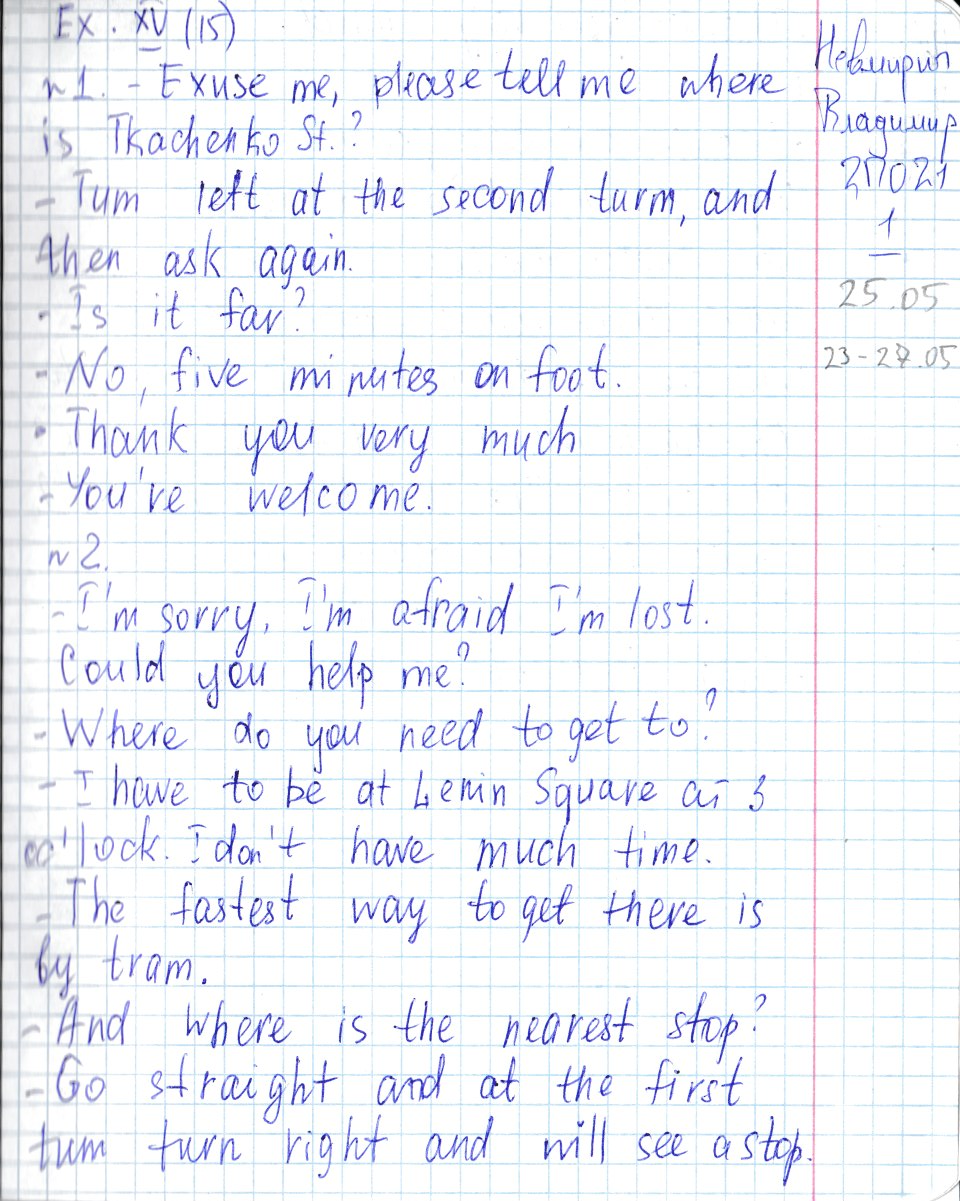 Ex. XV (15)
n1. - Exuse me, please tell me where
is Tkachenko St.?
- Tum left at the second turm, and
then ask again.
- Is it far?
- No, five minutes on foot.
- Thank you very much
- You're welcome.
n2.
- I'm sorry, I'm afraid I'm lost.
Could you help me?
- Where do you need to get to?
- I have to be at Lenin Square at 3
oo'lock. I don't have much time.
- The fastest way to get there is
by tram.
- And where is the nearest stop?
- Go straight and at the first
tum turn right and will see a stop.
Невмирич
Владимир
2П021
1
25.05
23-27.05